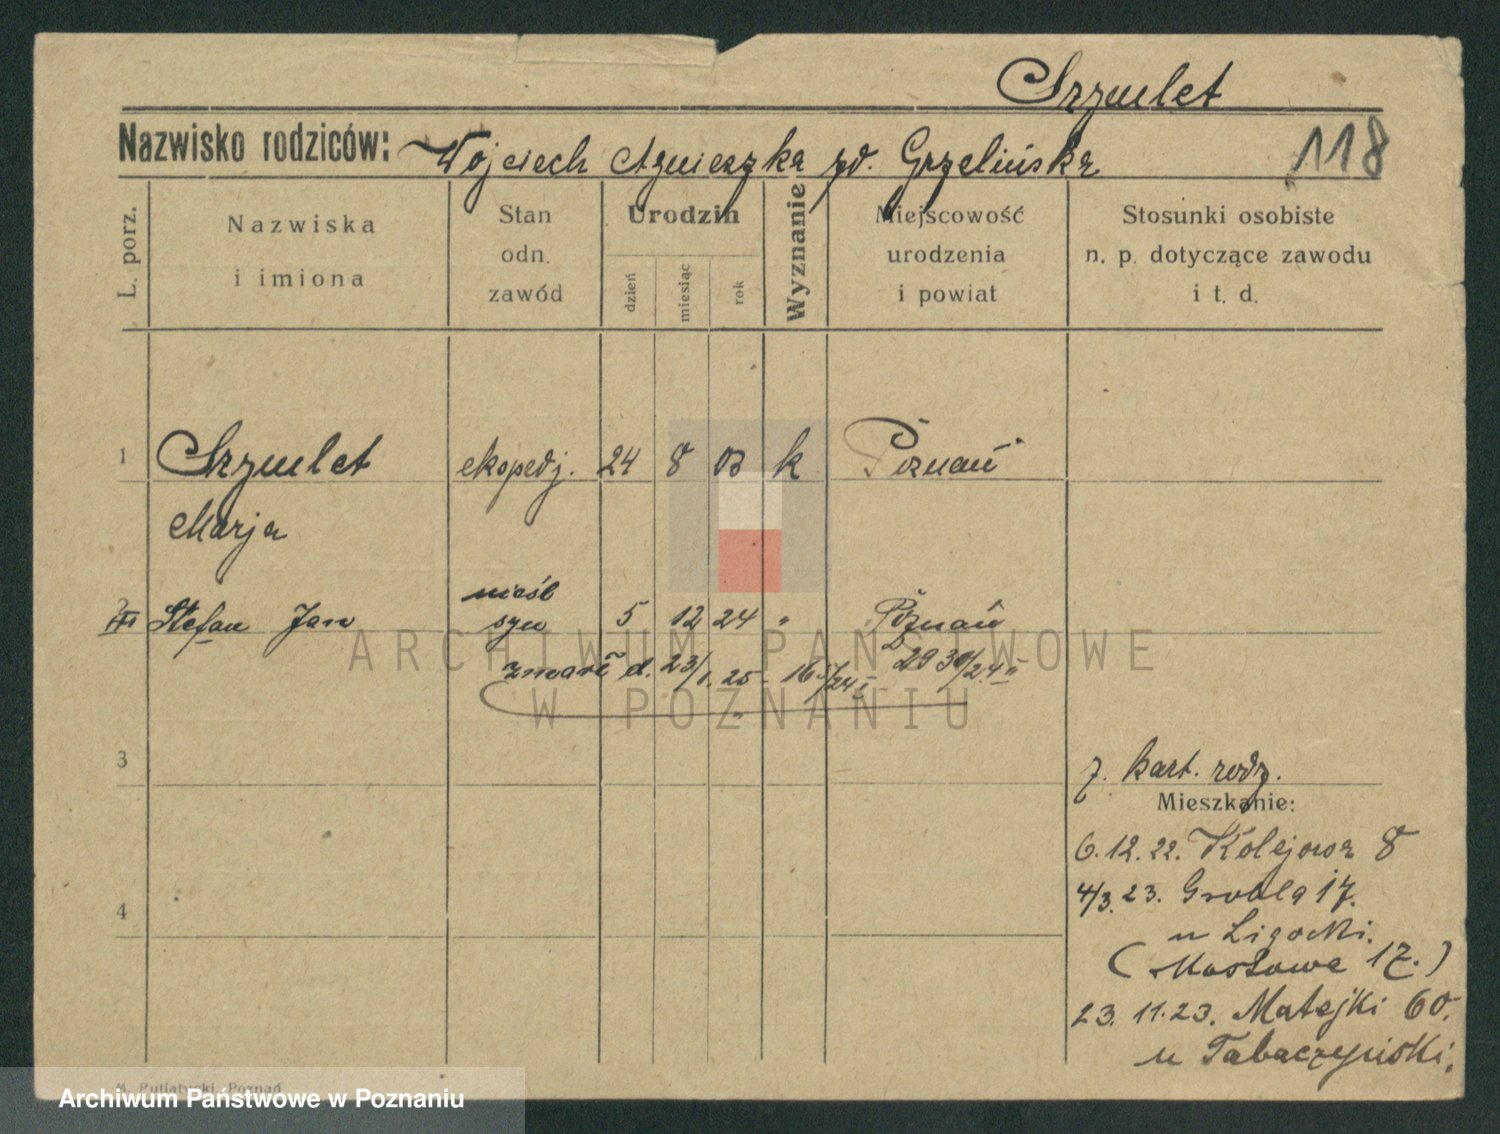 Szmulet
Nazwisko rodziców: Wojciech Agnieszka zd. Grzelińska
118
L. porz.
Nazwiska
i imiona
Stan
odn.
zawód
Urodzin
dzień
miesiąc
rok
Wyznanie
Miejscowość
urodzenia
i powiat
Stosunki osobiste
n. p. dotyczące zawodu
i t. d.
1 ekspedj. 24 8 03 k Poznań
Marja
nieśl
2 Stefan Jan syn 5 12 24 " Poznań
zmarł d. 23/1. 25
3
z. kart. rodz.
Mieszkanie:
6.12.22. Kolejowa 8
4/3. 23. Grobla 17.
4
u Ligocki.
(Mostowa 17.)
23. 11. 23. Matejki 60.
u Tabaczyński.
M. Putiatycki, Poznań
ARCHIWUM PAŃSTWOWE
W POZNANIU
Archiwum Państwowe w Poznaniu